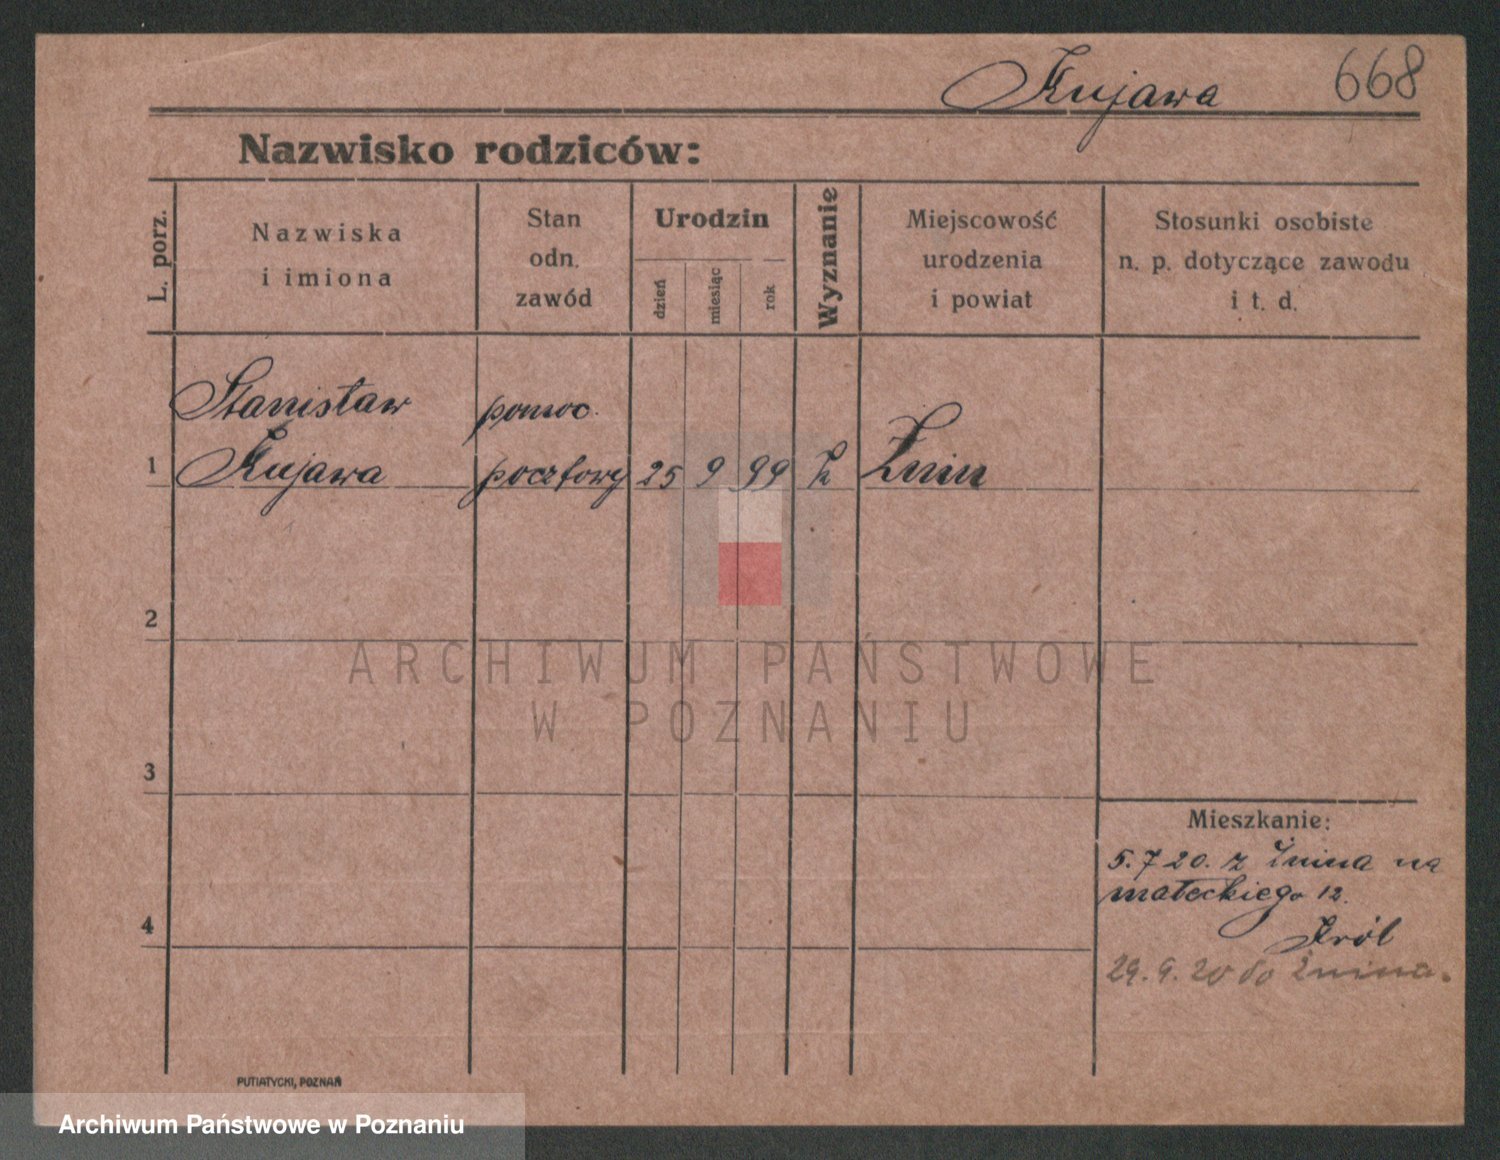 Kujawa 668
Nazwisko rodziców:
L. porz.
Nazwiska
i imiona
Stan
odn.
zawód
Urodzin
dzień
miesiąc
rok
Wyznanie
Miejscowość
urodzenia
i powiat
Stosunki osobiste
n. p. dotyczące zawodu
i t. d.
Stanisław pomoc.
1 Kujawa pocztowy 25 9 99 k Żnin
2
ARCHIWUM PAŃSTWOWE
W POZNANIU
3
Mieszkanie:
5.7 20. z Żnina na
małeckiego 12.
4
Król
29.9.20 do Żnina.
PUTIATYCKI, POZNAŃ
Archiwum Państwowe w Poznaniu